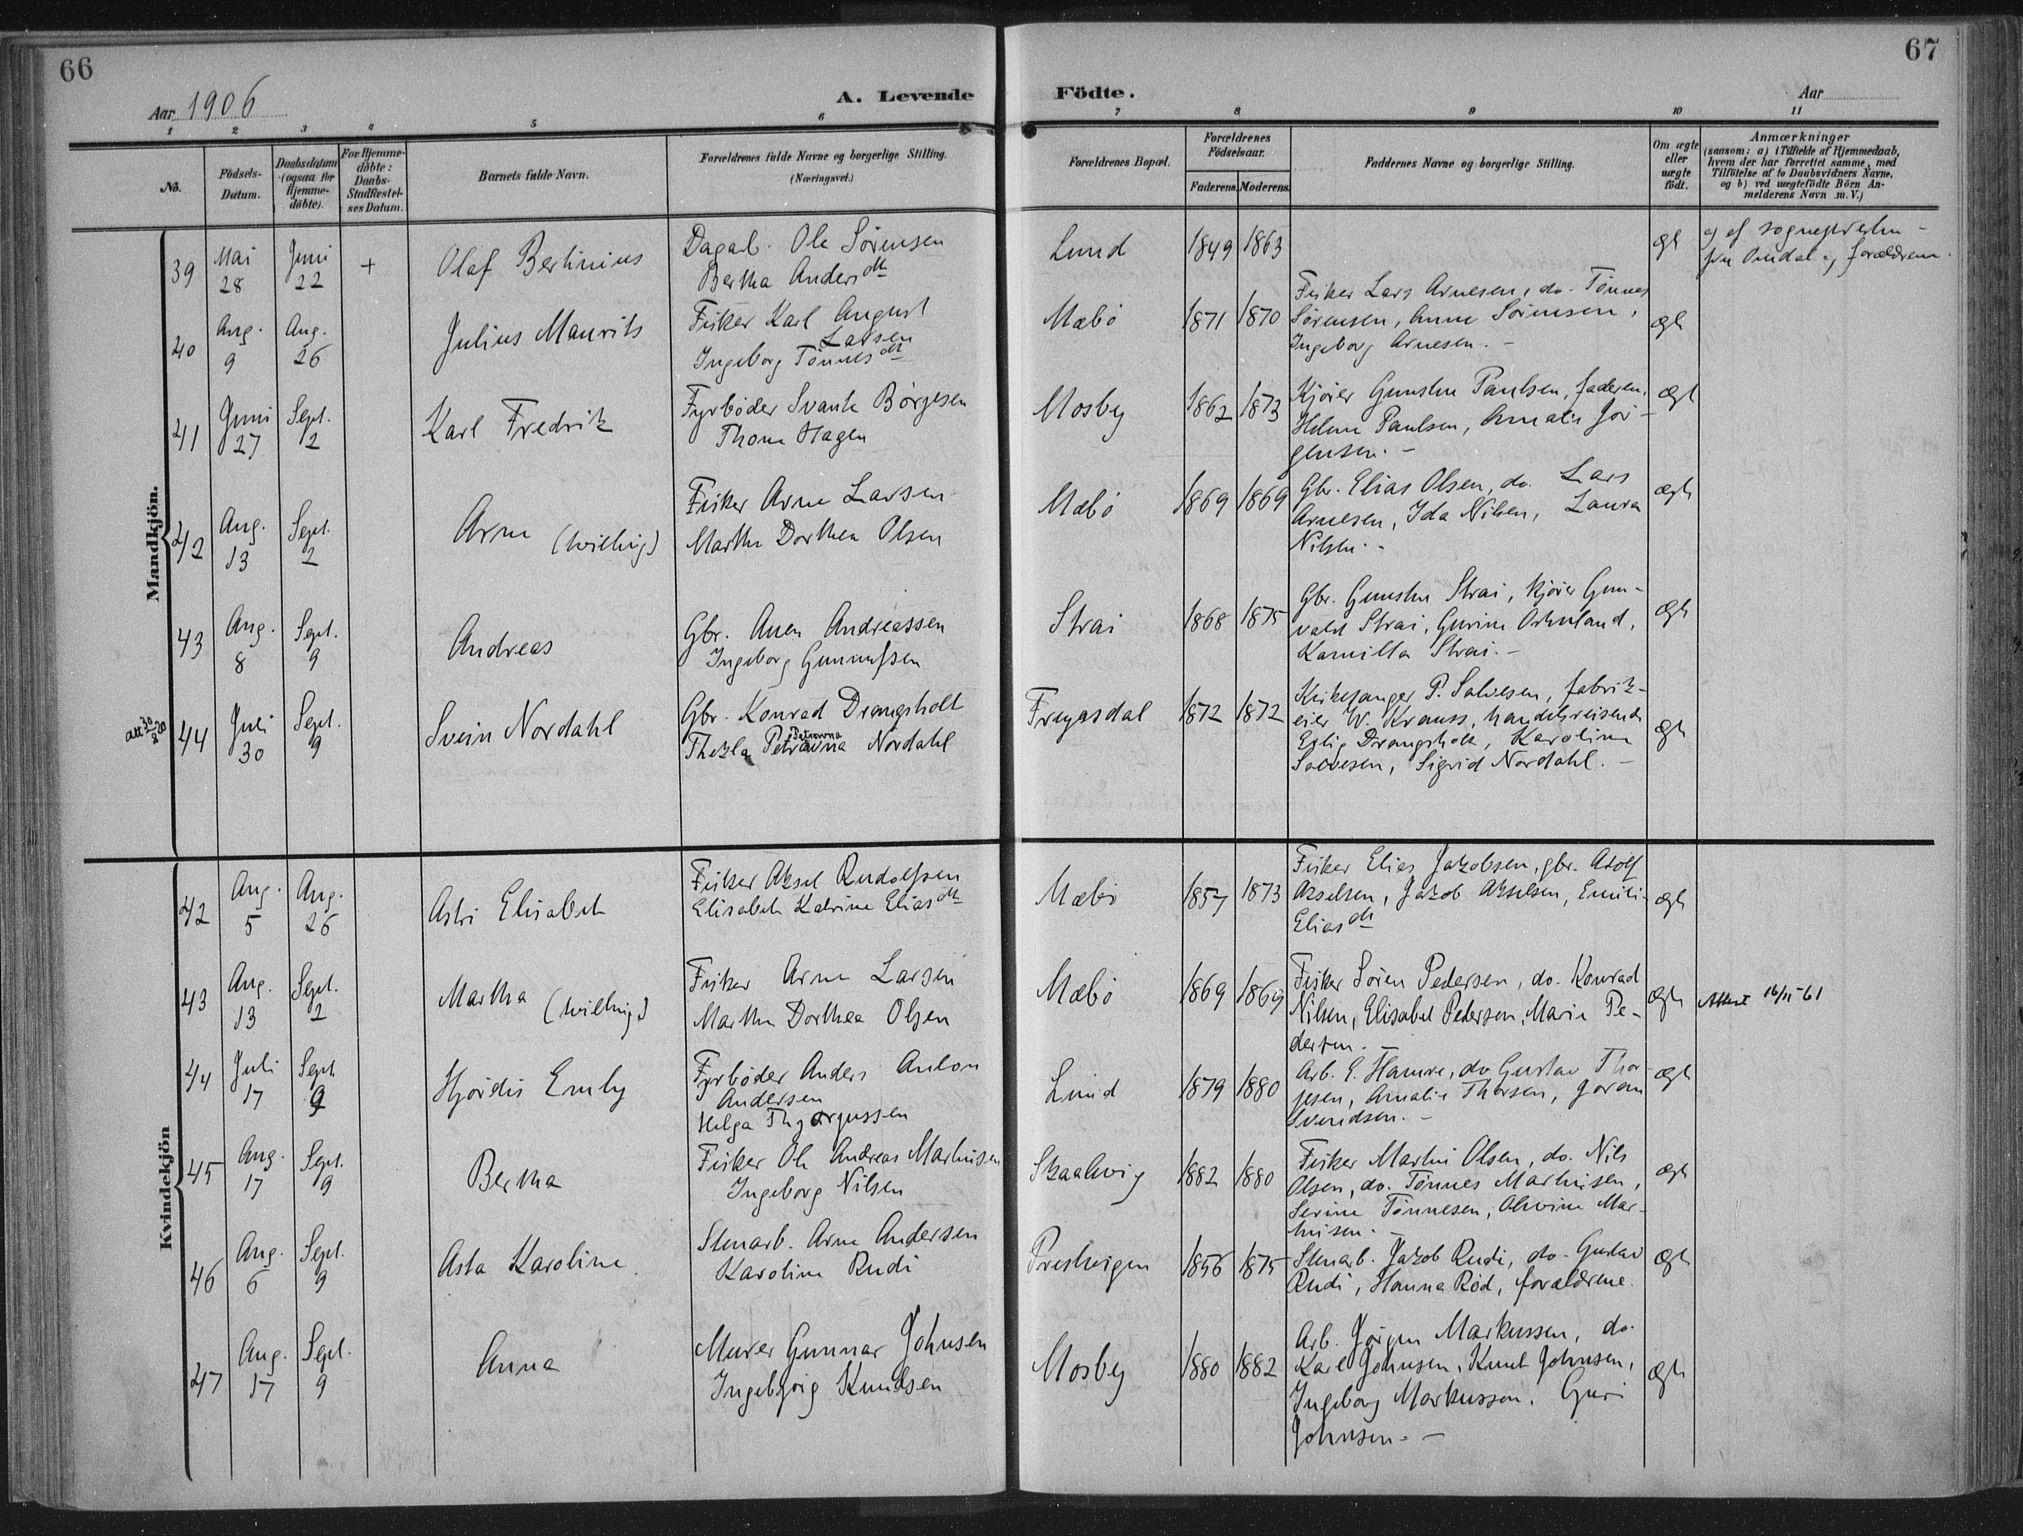 66
67
Aar 1906
A. Levende
Födte.
Aar
1 2 3 4 5 6 7 8 9 10 11
No.
Födsels-
Datum.
Daabsdatum
(ogsaa for
Hjemme-
döbte).
For Hjemme-
döbte:
Daabs-
Stadfæstel-
ses Datum.
Barnets fulde Navn.
Forældrenes fulde Navne og borgerlige Stilling.
(Næringsvei.)
Forældrenes Bopæl.
Forældrenes
Födselsaar.
Faderens. Moderens.
Faddernes Navne og borgerlige Stilling.
Om ægte
eller
uægte
födt.
Anmærkninger
(saasom: a) i Tilfælde af Hjemmedaab,
hvem der har forrettet samme, med
Tilföielse af to Daabsvidners Navne,
og b) ved uægtefödte Börn An-
melderens Navn m. V.)
Mandkjön.
39
Mai
28
Juni
22
+
Olaf Bertinius
Dagarb. Ole Sörensen
Bertha Andersdtr
Lund
1849 1863
ægte
40
Aug.
9
Aug.
26
Julius Maurits
Fisker Karl August
Larsen
Ingeborg Tönnesdtr
Mæbö
1871 1870
Fisker Lars Arnesen, do. Tönnes
Sörensen, Anne Sörensen,
Ingeborg Arnesen. -
ægte
41
Juni
27
Sept.
2
Karl Fredrik
Fyrböder Svante Börjesen
Thone Hagen
Mosby
1862 1873
Kjörer Gunsten Paulsen, faderen,
Helene Paulsen, Amalie Jör-
gensen. -
ægte
42
Aug.
13
Sept.
2
Arne (tvilling)
Fisker Arne Larsen
Marthe Dorthea Olsen
Mæbö
1869 1869
Gbr. Elias Olsen, do. Lars
Arnesen, Ida Nilsen, Laura
Nilsen. -
ægte
43
Aug.
8
Sept.
9
Andreas
Gbr. Anen Andreassen
Ingeborg Gunnufsen
Strai
1868 1875
Gbr. Gunsten Strai, kjörer Gun-
vald Strai, Gurine
Kamilla Strai. -
ægte
44
Juli
30
Sept.
9
Svein Nordahl
Gbr. Konrad Drangsholt
Petrowna
Thekla Petravna Nordahl
Frøyasdal
1872 1872
Kirkesanger P. Salvesen, fabrik-
eier W. Krauss, handelsreisende
Drangsholt, Karoline
Salvesen, Sigrid Nordahl. -
ægte
Kvindekjön
42
Aug.
5
Aug.
26
Astri Elisabet
Fisker Aksel Rudolfsen
Elisabeth Katrine Eliasdtr
Mæbö
1857 1873
Fisker Elias Jakobsen, gbr. Adolf
Akselsen, Jakob Akselsen, Emilie
Eliasdtr
ægte
43
Aug.
13
Sept.
2
Martha (tvilling)
Fisker Arne Larsen
Marthe Dorthea Olsen
Mæbö
1869 1869
Fisker Sören Pedersen, do. Konrad
Nilsen, Elisabet Pedersen, Marie Pe-
dersen. -
ægte
Attest 16/11-61
44
Juli
17
Sept.
9
Hjördis Emly
Fyrböder Anders Anton
Andersen
Helga Thjorgussen
Lund
1879 1880
Arb. E. Hamre, do Gustav Thor-
jesen, Amalie Thorsen, Joran
Svendsen. -
ægte
45
Aug.
17
Sept.
9
Bertha
Fisker Ole Andreas Martinsen
Ingeborg Nilsen
Skaalevig
1882 1880
Fisker Martin Olsen, do. Nils
Olsen, do. Tönnes Martinsen,
Serine Tönnesen, Alvine Mar-
tinsen. -
ægte
46
Aug.
6
Sept.
9
Asta Karoline
Stenarb. Arne Andersen
Karoline Rudi
Prestvigen
1856 1875
Stenarb. Jakob Rudi, do. Gustav
Rudi, Hanna Röd, forældrene.
ægte
47
Aug.
17
Sept.
9
Anna
Murer Gunnar Johnsen
Ingebjørg Knudsen
Mosby
1880 1882
Arb. Jörgen Markussen, do.
Karl Johnsen, Knut Johnsen,
Ingeborg Markussen, Guri
Johnsen. -
ægte